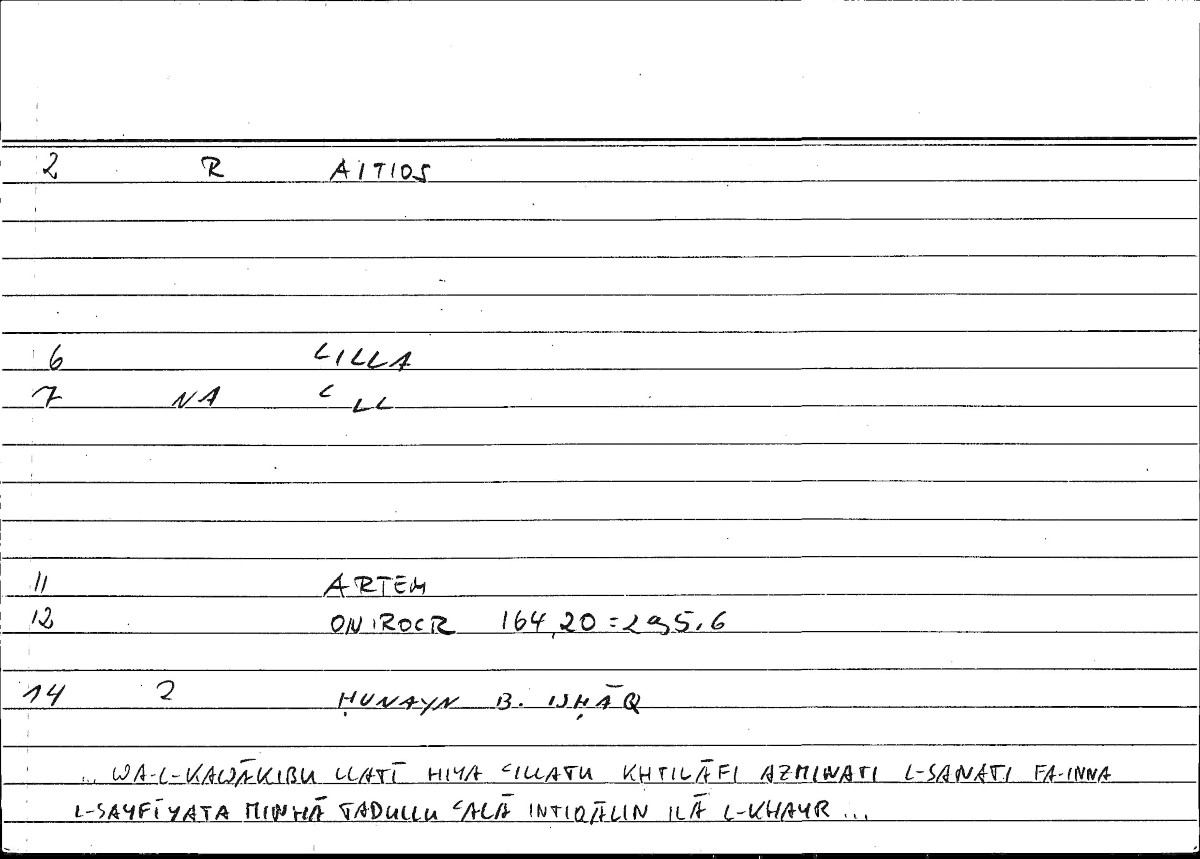 2 R AITIOS
6 ʿILLA
7 NA ʿLL
11 ARTEM
12 ONIROCR 164,20 = 295.6
14 2 ḤUNAYN B. ISḤĀQ
... WA-L-KAWĀKIBU LLATĪ HIYA ʿILLATU KHTILĀFI AZMINATI L-SANATI FA-INNA
L-SAYFĪYATA MINHĀ TADULLU ʿALĀ INTIQĀLIN ILĀ L-KHAYR ...